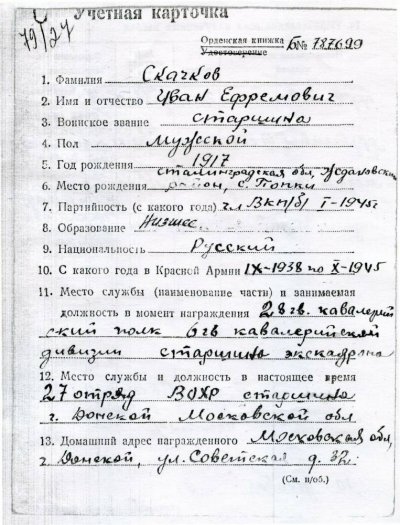 79/27
Учетная карточка
Орденская книжка
Удостоверение Б№ 787699
1. Фамилия Скачков
2. Имя и отчество Иван Ефремович
3. Воинское звание старшина
4. Пол мужской
5. Год рождения 1917
сталинградская обл, Ждановский
6. Место рождения район, с. Попки
7. Партийность (с какого года) чл ВКП/б/ I-1945г
8. Образование Низшее
9. Национальность Русский
10. С какого года в Красной Армии IX-1938 по X-1945
11. Место службы (наименование части) и занимаемая
должность в момент награждения 28 гв. кавалерий
ский полк 6 гв кавалерийской
дивизии старшина эскадрона
12. Место службы и должность в настоящее время
27 отряд ВОХР старшина
г. Донской Московской обл
13. Домашний адрес награжденного Московская обл,
г Донской, ул. Советская д. 32.
(См. н/об.)